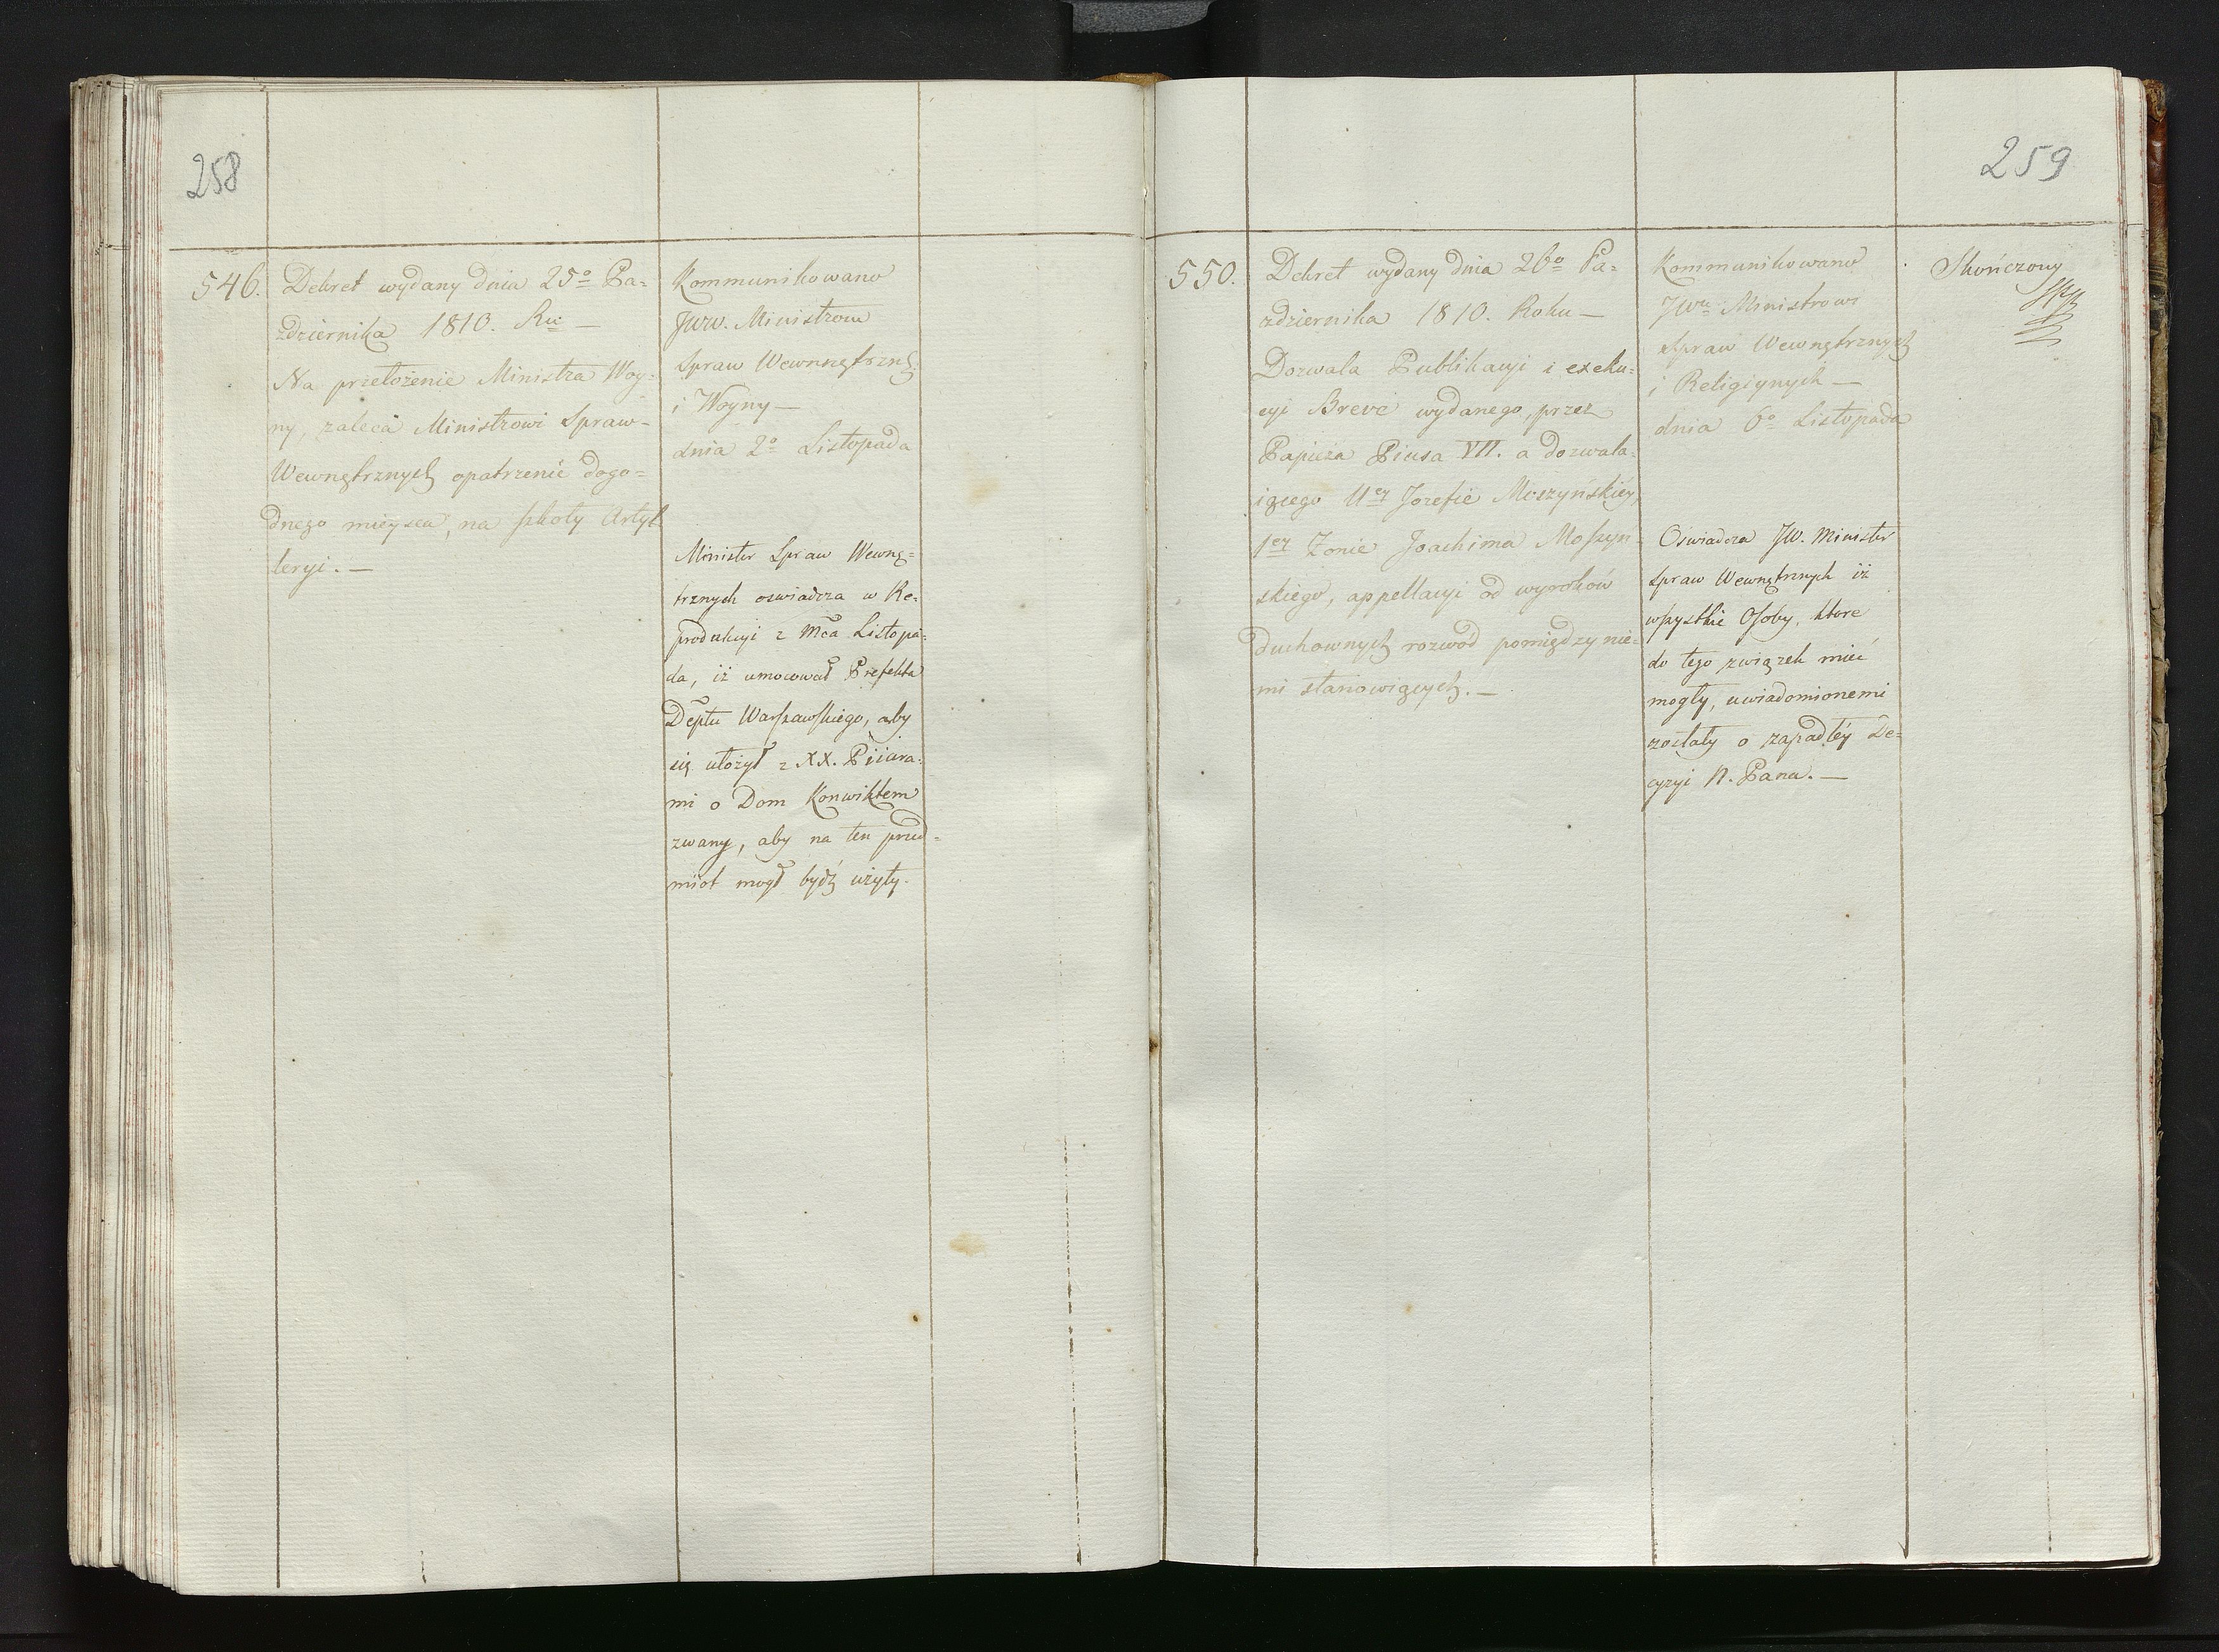 258
546.
Dekret wydany dnia 25º Pa=
zdziernika 1810. Ru —
Na przełożenie Ministra Woy=
ny, zaleca Ministrowi Spraw-
Wewnętrznych opatrzenie dogo=
dnego mieysca, na szkoły Artyl=
leryi. —
Kommunikowano
JWW. Ministrom
Spraw Wewnnętrzn
i Woyny —
dnia 2º Listopada
Minister Spraw Wewnę=
trznych oswiadcza w Re=
produkcyi z Mca Listopa=
da, iż umocował Prefekta
Deptu Warszawskiego, aby
się ułożył z XX. Piiara=
mi o Dom Konwiktem
zwany, aby na ten przed=
miot mogł bydź użyty.
259
550.
Dekret wydany dnia 26º Pa=
zdziernika 1810. Roku —
Dozwala Publikacyi i exeku=
cyi Breve wydanego, przez
Papieża Piusa VII. a dozwala=
iącego Uey Jozefie Moszyńskiey,
1ey Żonie Joachima Moszyn=
skiego, appellacyi od wyroków
duchownych rozwód pomiędzy nie=
mi stanowiących. —
Kommunikowano
JWu Ministrowi
Spraw Wewnętrznych
i Religiynych —
dnia 6º Listopada
Oswiadcza JW. Minister
Spraw Wewnętrznych iż
wszystkie Osoby, ktore
do tego związek mieć
mogły, uwiadomionemi
zostały o zapadłéy De=
cyzyi N. Pana. —
Skończony